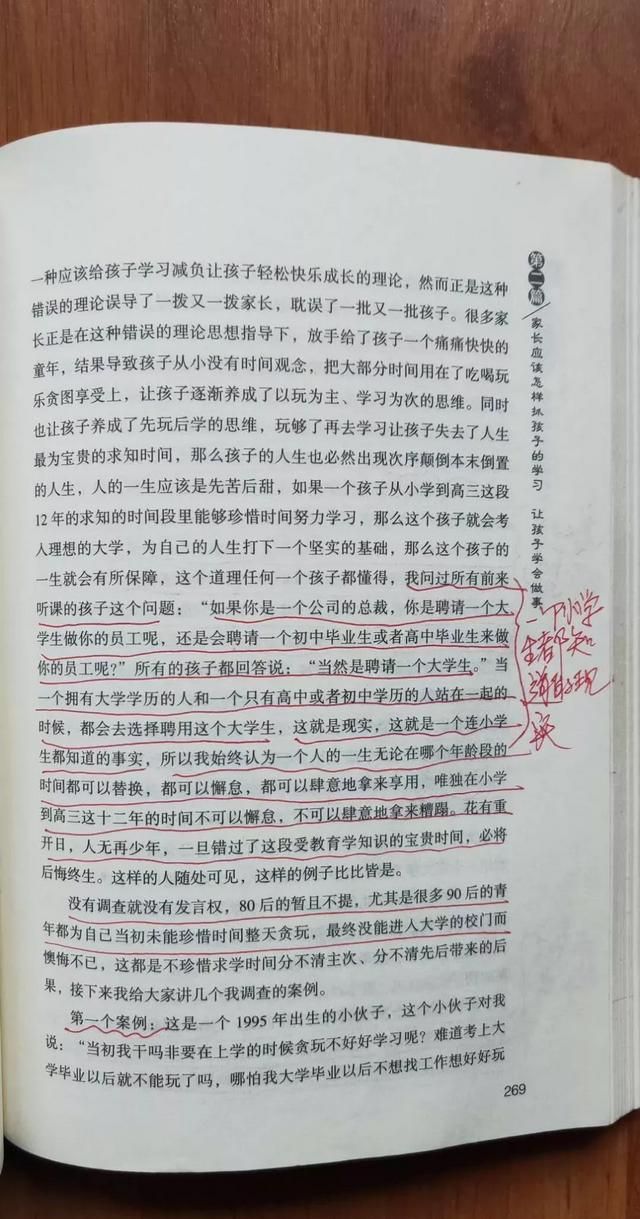 一种应该给孩子学习减负让孩子轻松快乐成长的理论，然而正是这种
错误的理论误导了一拨又一拨家长，耽误了一批又一批孩子。很多家
长正是在这种错误的理论思想指导下，放手给了孩子一个痛痛快快的
童年，结果导致孩子从小没有时间观念，把大部分时间用在了吃喝玩
乐贪图享受上，让孩子逐渐养成了以玩为主、学习为次的思维。同时
也让孩子养成了先玩后学的思维，玩够了再去学习让孩子失去了人生
最为宝贵的求知时间，那么孩子的人生也必然出现次序颠倒本末倒置
的人生，人的一生应该是先苦后甜，如果一个孩子从小学到高三这段
12年的求知的时间段里能够珍惜时间努力学习，那么这个孩子就会考
入理想的大学，为自己的人生打下一个坚实的基础，那么这个孩子的
一生就会有所保障，这个道理任何一个孩子都懂得，我问过所有前来
听课的孩子这个问题：“如果你是一个公司的总裁，你是聘请一个大
学生做你的员工呢，还是会聘请一个初中毕业生或者高中毕业生来做
你的员工呢？”所有的孩子都回答说：“当然是聘请一个大学生。”当
一个拥有大学学历的人和一个只有高中或者初中学历的人站在一起的
时候，都会去选择聘用这个大学生，这就是现实，这就是一个连小学
生都知道的事实，所以我始终认为一个人的一生无论在哪个年龄段的
时间都可以替换，都可以懈怠，都可以肆意地拿来享用，唯独在小学
到高三这十二年的时间不可以懈怠，不可以肆意地拿来糟蹋。花有重
开日，人无再少年，一旦错过了这段受教育学知识的宝贵时间，必将
后悔终生。这样的人随处可见，这样的例子比比皆是。
没有调查就没有发言权，80后的暂且不提，尤其是很多90后的青
年都为自己当初未能珍惜时间整天贪玩，最终没能进入大学的校门而
懊悔不已，这都是不珍惜求学时间分不清主次、分不清先后带来的后
果，接下来我给大家讲几个我调查的案例。
第一个案例：这是一个1995年出生的小伙子，这个小伙子对我
说：“当初我干吗非要在上学的时候贪玩不好好学习呢？难道考上大
学毕业以后就不能玩了吗，哪怕我大学毕业以后不想找工作想好好玩
第二篇
家长应该怎样抓孩子的学习 让孩子学会做事
一个小学
生都知
道的现
实
269